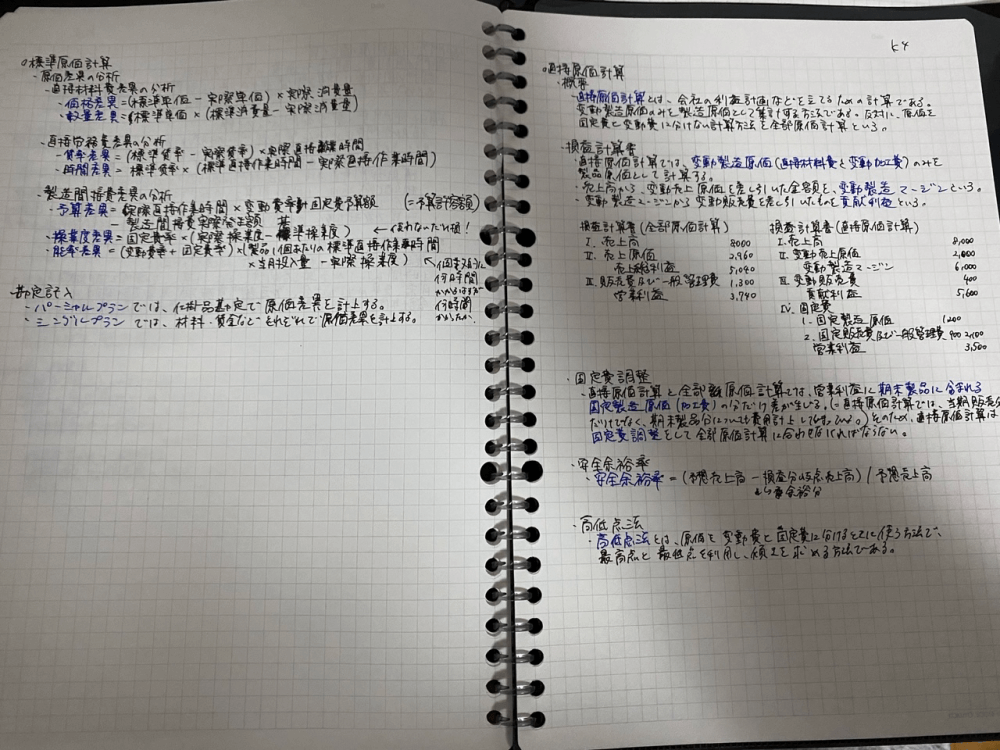 ○標準原価計算
・原価差異の分析
・直接材料費差異の分析
・価格差異=(標準単価-実際単価)×実際消費量
・数量差異=標準単価×(標準消費量-実際消費量)
・直接労務費差異の分析
・賃率差異=(標準賃率-実際賃率)×実際直接 時間
・時間差異=標準賃率×(標準直接作業時間-実際直接作業時間)
・製造間接費差異の分析
・予算差異=(実際直接作業時間×変動費率 固定費予算額 (=予算許容額)
-製造間接費実際発生額
・操業度差異=固定費率×(実際操業度-基準操業度) ←
・能率差異=(変動費率+固定費率)×(製品1個あたりの標準直接作業時間
×当月投入量-実際操業度) ←
何時間
何時間
勘定記入
・パーシャルプランでは、仕掛品勘定で原価差異を計上する。
・シングルプランでは、材料・賃金などそれぞれで原価差異を計上する。
○直接原価計算
・概要
・直接原価計算とは、会社の利益計画などを立てるための計算である。
変動製造原価のみを製造原価として集計する方法である。反対に、原価を
固定費と変動費に分けない計算方法を全部原価計算という。
・損益計算書
・直接原価計算では、変動製造原価(直接材料費と変動加工費)のみを
製品原価として計算する。
・売上高から、変動売上原価を差し引いた金額を、変動製造マージンという。
・変動製造マージンから変動販売費を差し引いたものを貢献利益という。
損益計算書(全部原価計算)
I. 売上高 8000
II. 売上原価 2,960
売上総利益 5,040
III. 販売費及び一般管理費 1,300
営業利益 3,740
損益計算書(直接原価計算)
I. 売上高 8,000
II. 変動売上原価 2,000
変動製造マージン 6,000
III. 変動販売費 400
貢献利益 5,600
IV. 固定費
1. 固定製造原価 1200
2. 固定販売費及び一般管理費 900 2,100
営業利益 3,500
・固定費調整
・直接原価計算と全部 原価計算では、営業利益に期末製品に含まれる
固定製造原価(加工費)の分だけ差が生じる。(=直接原価計算では、当期販売分
だけでなく、期末製品分についても費用計上 )そのため、直接原価計算は
固定費調整をして全部原価計算に合わせなければならない。
・安全余裕率
・安全余裕率=(予想売上高-損益分岐点売上高)/予想売上高
・高低点法
・高低点法とは、原価を変動費と固定費に分けるときに使う方法で、
最高点と最低点を利用し、傾きを求める方法である。